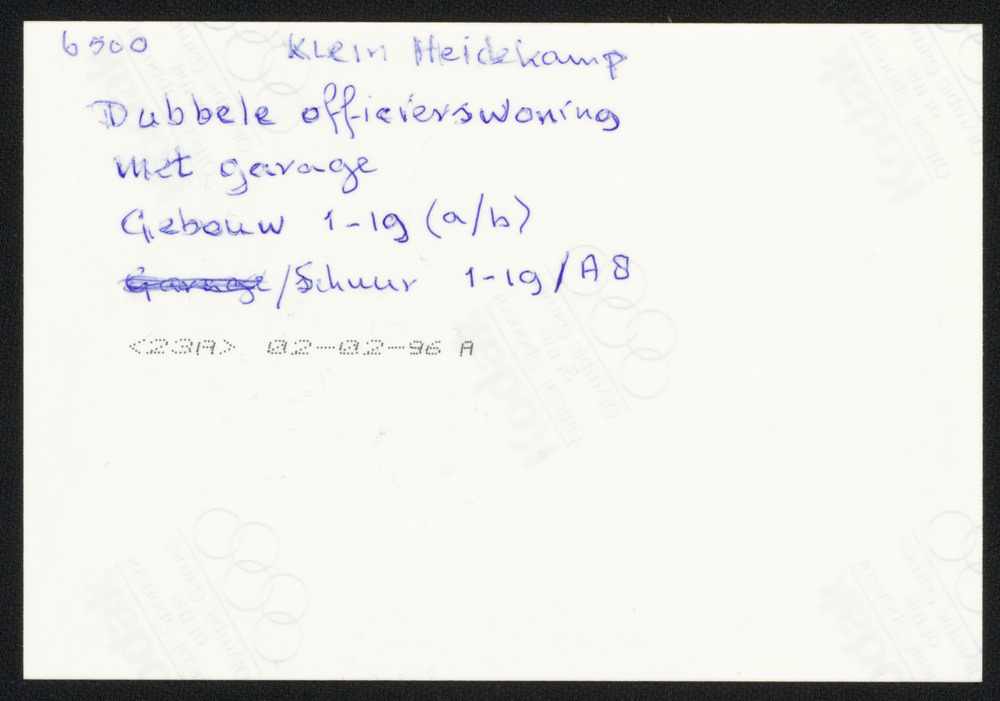 6500 Klein Heidekamp
Dubbele officierswoning
met garage
Gebouw 1-19 (a/b)
Garage/Schuur 1-19/A8
<23A> 02-02-96 A
Kodak
Official Sponsor
of the
Olympic Games